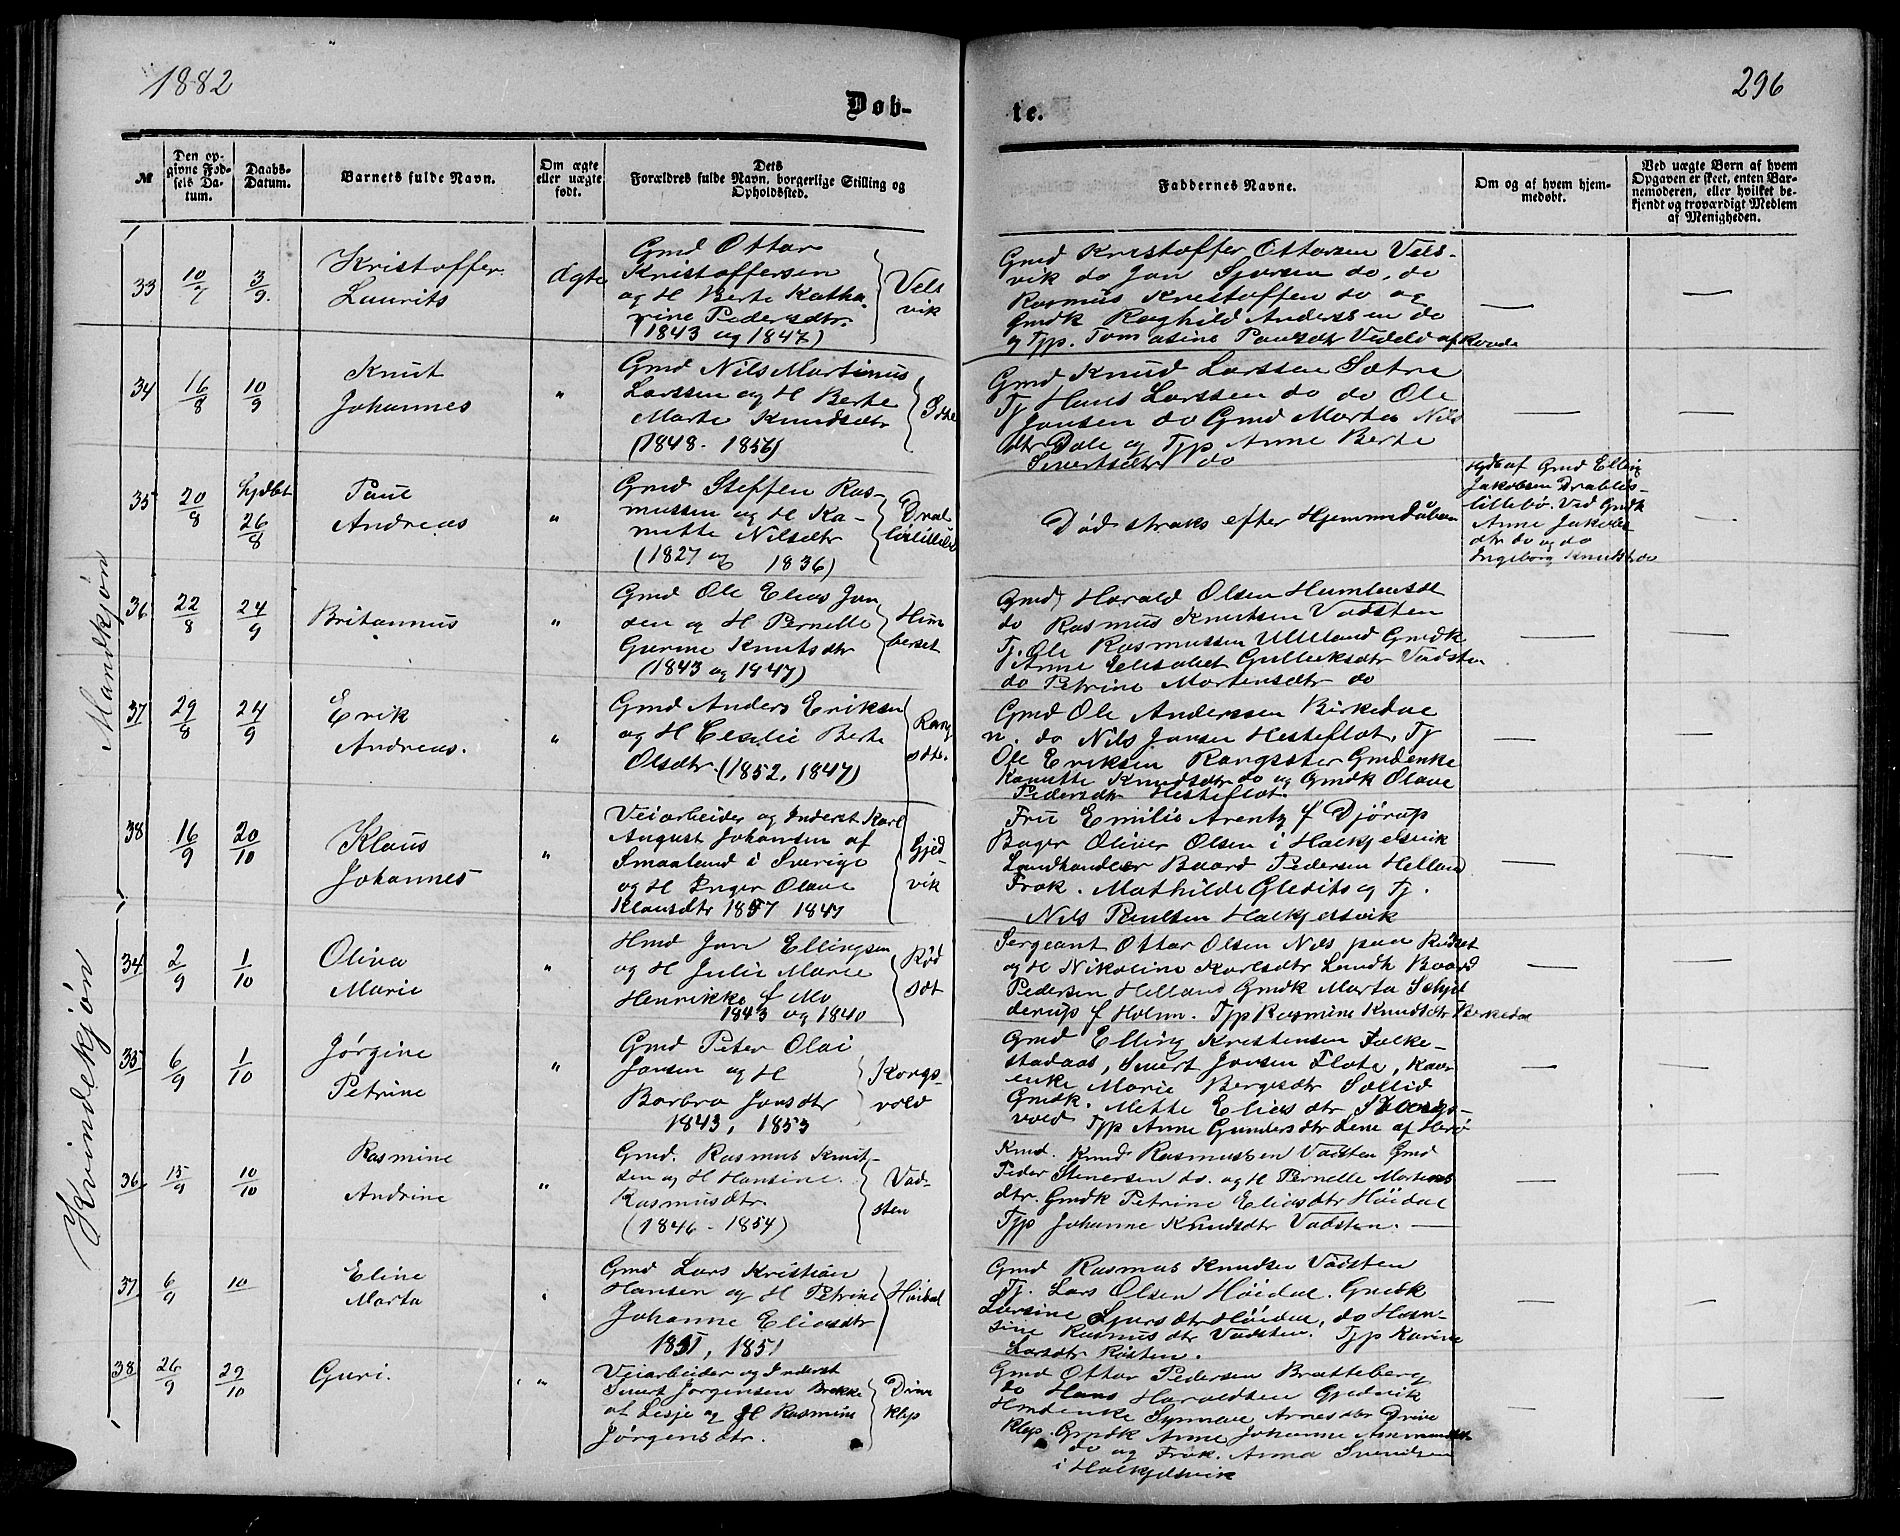 1882
296
Døb-
te.
№
Den op-
givne Fød-
sels Da-
tum.
Daabs-
Datum.
Barnets fulde Navn.
Om ægte
eller uægte
født.
Dets
Forældres fulde Navn, borgerlige Stilling og
Opholdssted.
Faddernes Navne.
Om og af hvem hjem-
medøbt.
Ved uægte Børn af hvem
Opgaven er skeet, enten Bar-
nemoderen, eller hvilket be-
kjendt og troværdigt Medlem
af Menigheden.
Mandkjøn
33
10/7
3/9.
Kristoffer
Laurits
ægte
Gmd Ottar
Kristoffersen
og H Berte Katha-
rine Pedersdtr.
(1843 og 1847)
Vels
vik
Gmd Kristoffer Ottarsen Vels-
vik do Jon Sjursen do, do
Rasmus Kristoffersen do og
Gmdk Raghild Anderssen do
34
16/8
10/9
Knut
Johannes
"
Gmd Nils Martinus
Larssen og H Berte
Marte Knudsdtr
(1848 - 1856)
Gmd Knud Larssen Sætre
Tj Hans Larssen do do Ole
Jansen do Gmd Marta Nils
dtr Dale og Tjp Anne Berte
Sivertsdtr do
35
20/8
hjdbt
26/8
Paul
Andreas
"
Gmd Steffen Ras-
mussen og H Ka-
mitte Nilsdtr
(1827 og 1836)
Død straks efter Hjemmedåben
Hjdb af Gmd Elling
Jakobsen Drablös-
lillebö. Ved Gmdk
Anne Jakobs
dtr do og do
Ingeborg Knutsdtr do
36
22/8
24/9
Britannus
"
Gmd Ole Elias Jon
sen og H Pernelle
Gurine Knutsdtr
(1843 og 1847)
Gmd Harald Olsen Humberset
do Rasmus Knutsen Vadsten
Tj. Ole Rasmussen Ulleland Gmdk
Anne Elisabet Gulleiksdtr Vadsten
do Petrine Mortensdtr do
37
29/8
24/9
Erik
Andreas.
"
Gmd Anders Eriksen
og H Cecilie Berte
Olsdtr (1852, 1847)
Rang
sæt.
Gmd Ole Anderssen Birkedal
n. do Nils Jansen Hesteflot, Tj
Ole Eriksen Rangsæter Gmdenke
Kanutte Knudsdtr do og Gmdk Olave
Pedersdtr Hesteflot.
38
16/9
20/10
Klaus
Johannes
"
Veiarbeider og Inderst Karl
August Johansen af
Smaaland i Sverige
og H Inger Olave
Klausdtr 1857 1847
Gjed-
vik
Fru Emilie Arentz f Djørup
Bager Oliver Olsen i Halkjelsvik
Landhandler Baard Pedersen Helland
Frøk. Mathilde Gleditsog Tj.
Nils Paulsen Halkjelsvik
Kvindekjøn
34
2/9
1/10
Olina
Marie
"
Hmd Jon Ellingsen
og H Julie Marie
Henrikke f Mo
1843 og 1840
Rød
sæt
Sergeant Ottar Olsen Nes paa Rødset
og H Nikoline Karlsdtr Landh Baard
Pedersen Helland Gmdk Marta Schjel
derup f Holm. Tjp Rasmine Knudsdtr Birkedal
35
6/9
1/10
Jørgine
Petrine
"
Gmd Peter Olai
Jansen og H
Barbra Jonsdtr
1843, 1853
Korgs-
vold
Gmd Elling Kristensen Folke-
stadaas, Sivert Jonsen Flote, Kaar
enke Marie Bergesdtr Sollid
Gmdk. Mette Eliasdtr Korgs-
vold Tjp Anne Gundersdtr Lene af Herø
36
15/9
10/10
Rasmine
Andrine
"
Gmd. Rasmus Knut-
sen og H Hansine
Rasmusdtr.
(1846 - 1854)
Vad-
sten
Kmd. Knud Rasmussen Vadsten Gmd
Peder Stenersen do. og H Pernelle Mortens
dtr. Gmdk Petrine Eliasdtr Höidal
Tjp Johanne Knudsdtr Vadsten.
37
6/9
10
Eline
Marta
Gmd Lars Kristian
Hansen og H Petrine
Johanne Eliasdtr
1851, 1851
Höidal
Gmd Rasmus Knudsen Vadsten
Tj. Lars Olsen Höidal. Gmdk
Larsine Sjursdtr Höidal, do Han-
sine Rasmusdtr Vadsten. Tjp Karine
Larsdtr Rösten.
38
26/9
29/10
Guri.
"
Veiarbeider og Inderst
Sivert Jørgensen Brekke
af Lesje og H Rasmine
Jørgensdtr.
Drive
klep
Gmd Ottar Pedersen Bratteberg
do Hans Haraldsen Gjedvik
Hmdenke Synneve Arnesdtr Drive
klep. Gmdk Anne Johanne Ammundsdtr
do og Frøk. Anna Svendsen
i Halkjelsvik